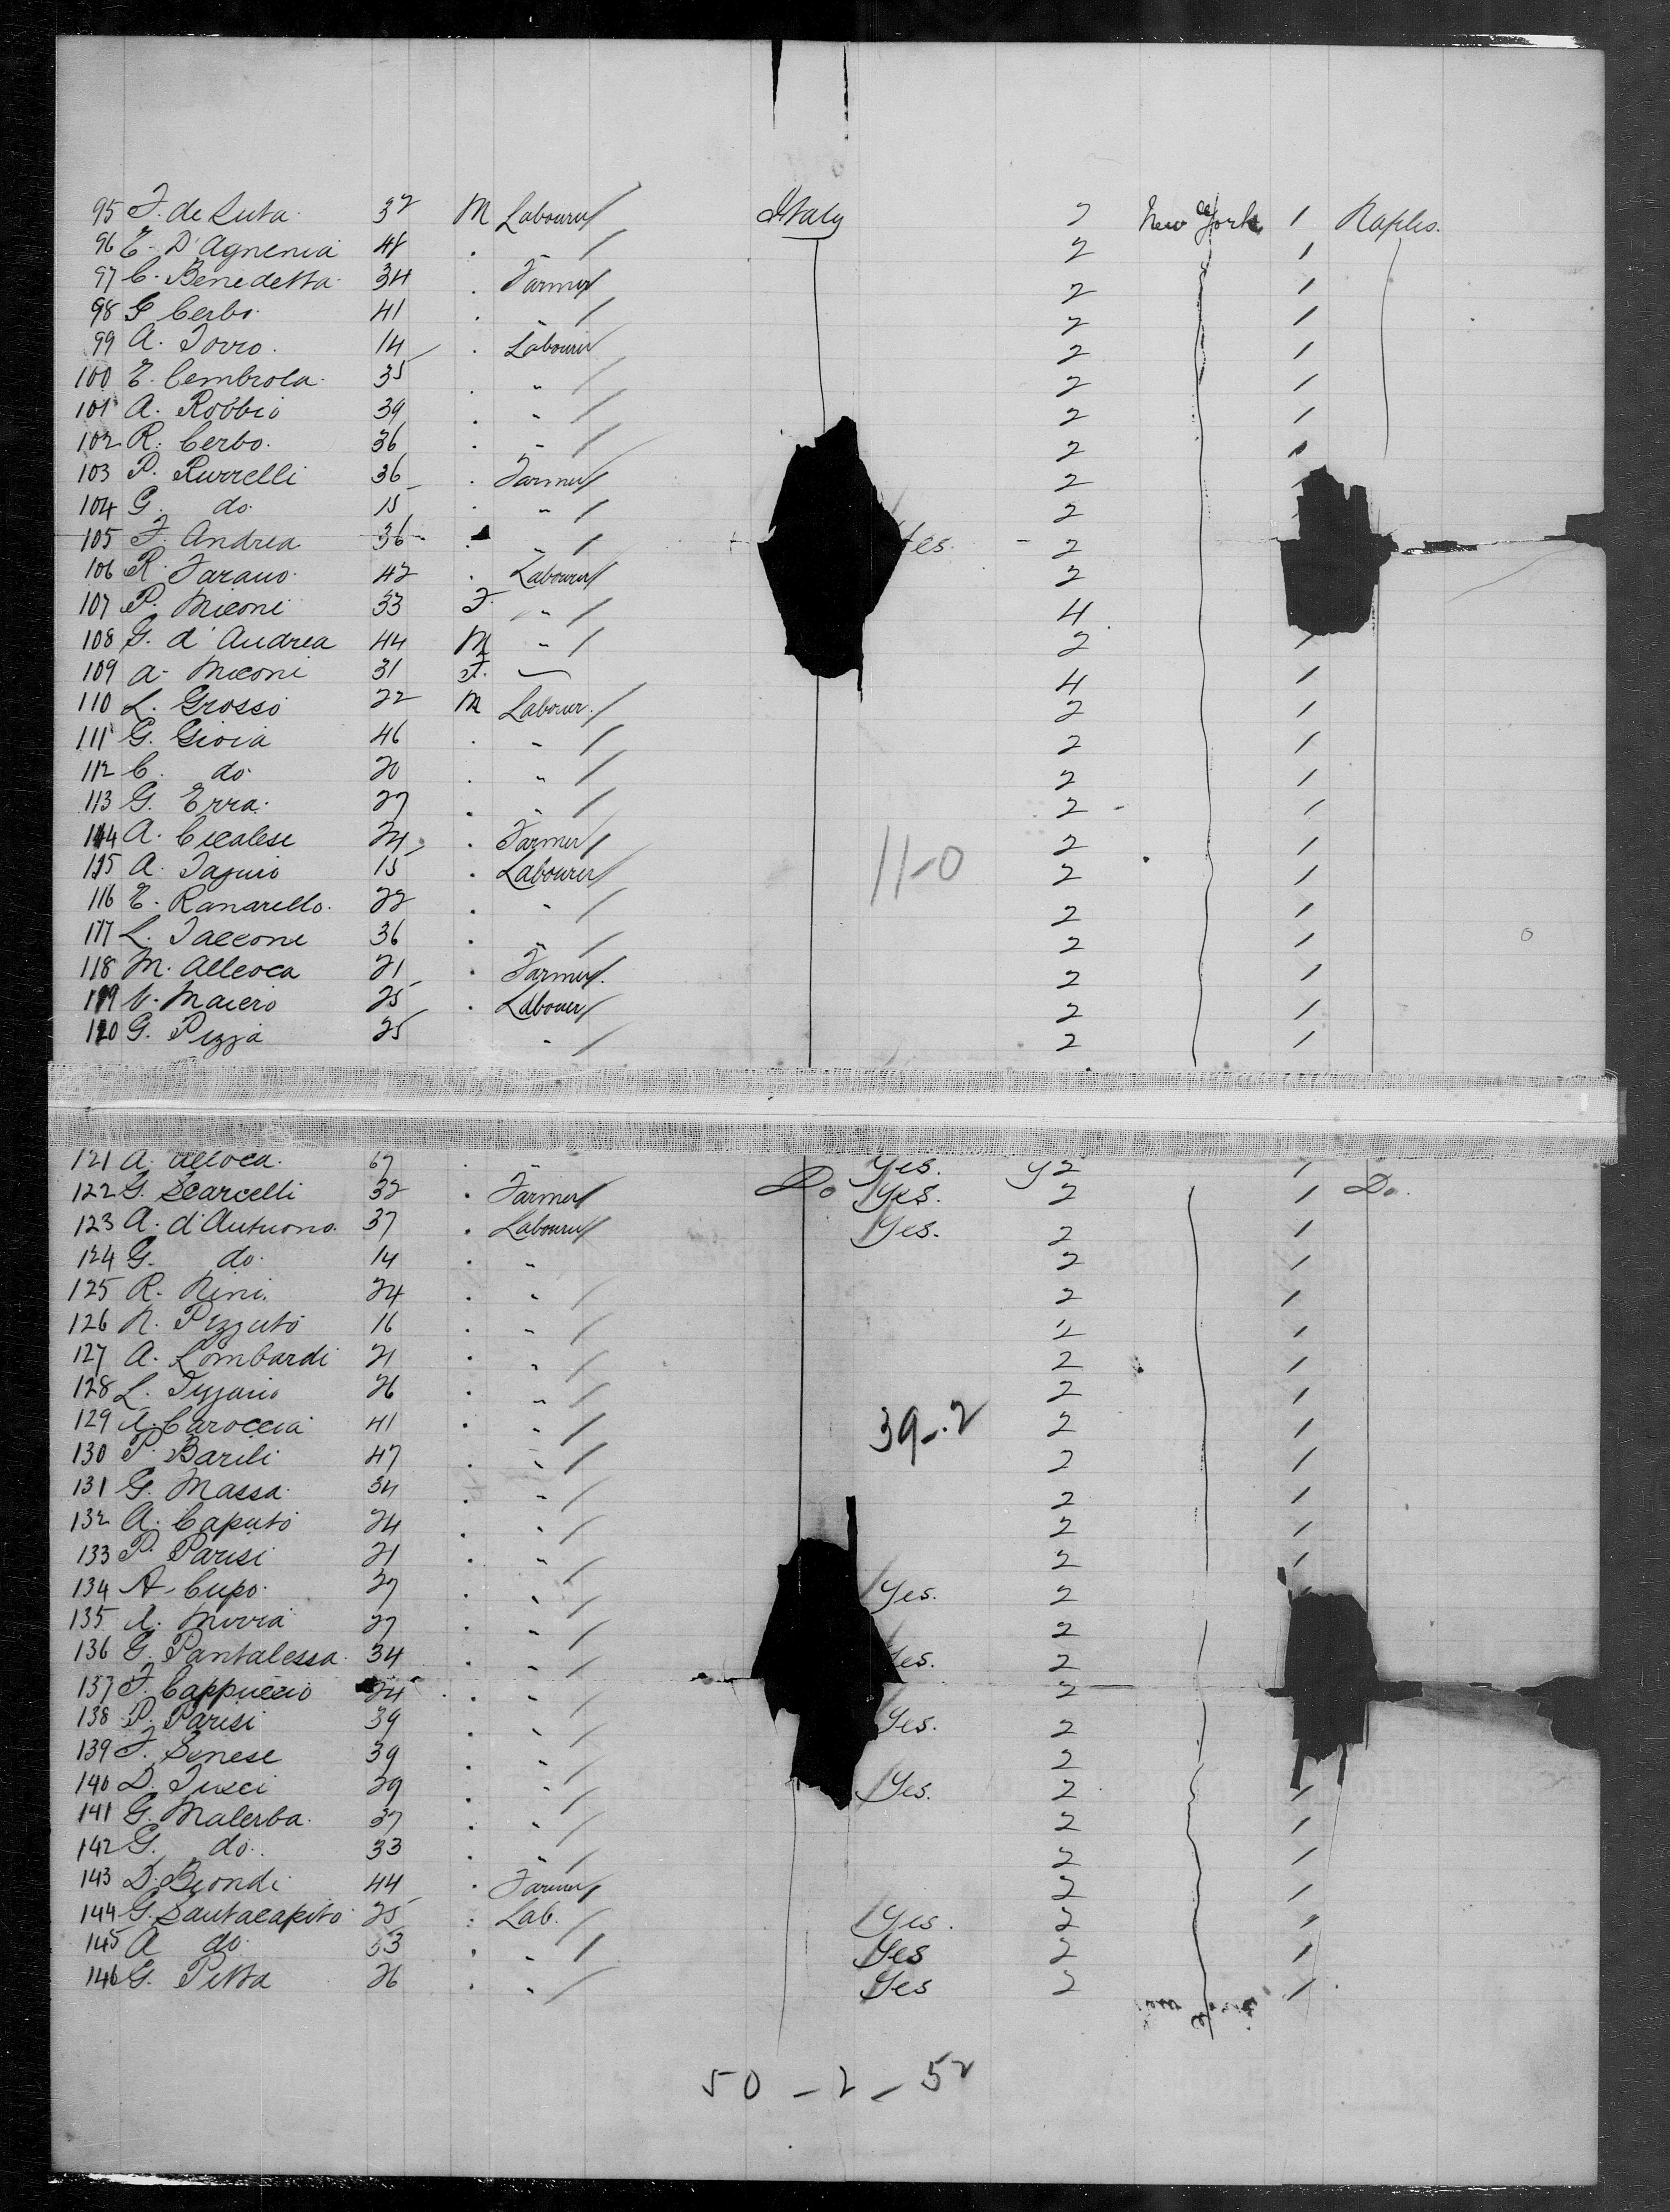 95 F. de Luta. 32 M Labourer / Italy 2 New York 1 Naples.
96 E. D'Agnenia 48 . " / 2 /
97 C. Benedetta. 34 . Farmer / 2 /
98 G Cerbo. 41 . " / 2 /
99 A. Torro. 14 . Labourer / 2 /
100 E. Cembrola. 35 . " / 2 /
101 A. Robbio 39 . " / 2 /
102 R. Cerbo. 36 . " / 2 /
103 P. Rurrelli 36 . Farmer / 2
104 G. do. 15 . " / 2
105 F. Andrea 36 . " / es. 2
106 R. Farano. 42 . Labourer / 2
107 P. Miconi 33 F. " / 4
108 G. d'Andrea 44 M " / 2 /
109 A. Miconi 31 F. — 4 /
110 L. Grosso 22 M Labourer. / 2 /
111 G. Gioia 46 . " / 2 /
112 C. do. 20 . " / 2 /
113 G. Erra. 27 . " / 2 /
114 A. Cicalese 24 . Farmer / 2 /
115 A. 15 . Labourer / 11-0 2 /
116 E. Ranarello. 22 . " / 2 /
117 L. Iaccone 36 . " / 2 /
118 M. Alleoca 21 . Farmer /. 2 /
119 V. Maiero 25 . Labourer / 2 /
120 G. Pizza 25 " / 2 /
121 A. Alloca. 67 . " Yes. 2 /
122 G. Scarcelli 32 . Farmer / Do Yes. 2 / Do.
123 A. d'Antuono. 37 . Labourer / Yes. 2 /
124 G. do. 14 . " 2 /
125 R. Nini. 24 . " / 2 /
126 N. Pizzuto 16 . " / 2 /
127 A. Lombardi 21 . " / 2 /
128 L. 26 . " / 2 /
129 A. Caroccia 41 . " / 39-.2 2 /
130 P. Barili 47 . " / 2 /
131 G. Massa. 34 . " / 2 /
132 A. Caputo 24 . " / 2 /
133 P. Parisi 21 . " / 2 /
134 A. Cupo. 27 . " / Yes. 2
135 A. Murra 27 . " / 2
136 G. Pantalessa. 34 . " / es. 2
137 F. Cappuccio 24 . " / 2
138 P. Parisi 39 . " / Yes. 2
139 F. Senese 39 . " / 2
140 D. Tusci 29 . " / Yes. 2 /
141 G. Malerba. 37 . " / 2 /
142 G. do. 33 . " / 2 /
143 D. Biondi 44 . Farmer / 2 /
144 G. Santacapito 25 : Lab. / Yes. 2 /
145 A do. 53 . " / Yes 2 /
146 G. Petta 26 . " / Yes 2 /
50 - 2 - 52